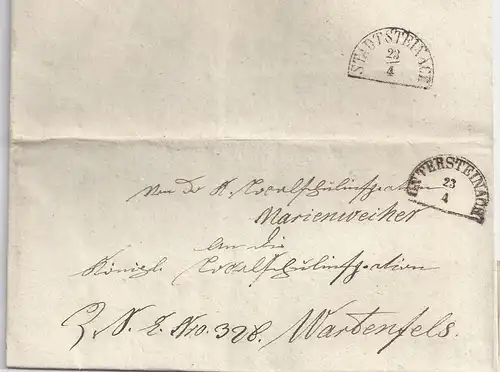 STADTSTEINACH
23
4
UNTERSTEINACH
23
4
Von der K. Localschulinspection
Marienweiher
An die
Königl. Localschulinspection
E. Nro. 328. Wartenfels.